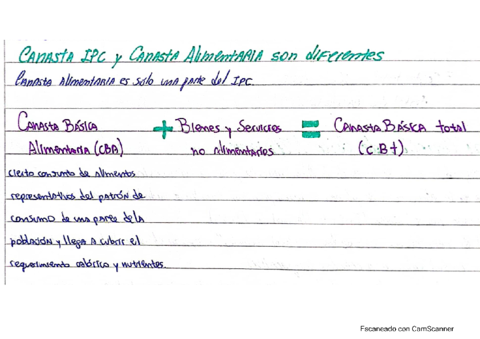 Canasta IPC y Canasta Alimentaria son diferentes
Canasta alimentaria es solo una parte del IPC.
Canasta Básica + Bienes y Servicios = Canasta Básica total
Alimentaria (CBA) no alimentarios (CBt)
cierto consumo de alimentos
representativos del patrón de
consumo de una parte de la
población y llega a cubrir el
requerimiento calórico y nutrientes.
Escaneado con CamScanner